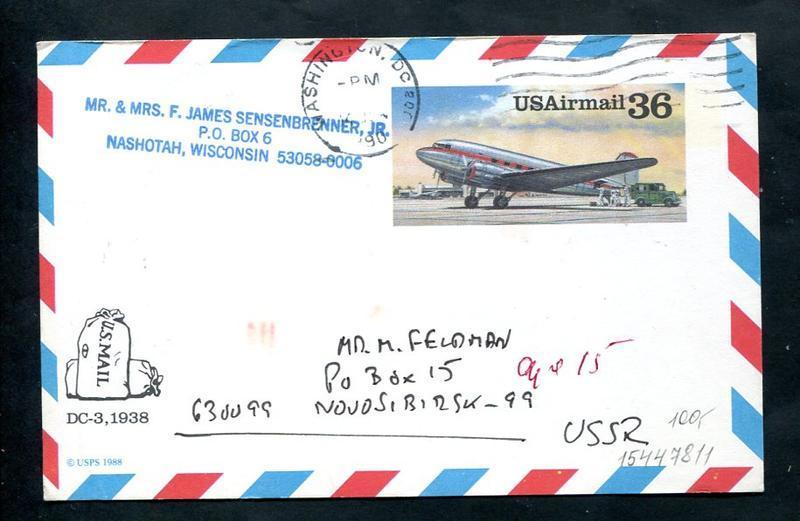 WASHINGTON, DC 
PM
'90
USAirmail 36
MR. & MRS. F. JAMES SENSENBRENNER, JR.
P.O. BOX 6
NASHOTAH, WISCONSIN 53058-0006
U.S. MAIL
DC-3, 1938
© USPS 1988
MR. M. FELDMAN
PO BOX 15
630099 NOVOSIBIRSK-99
USSR
15
100,-
15447811